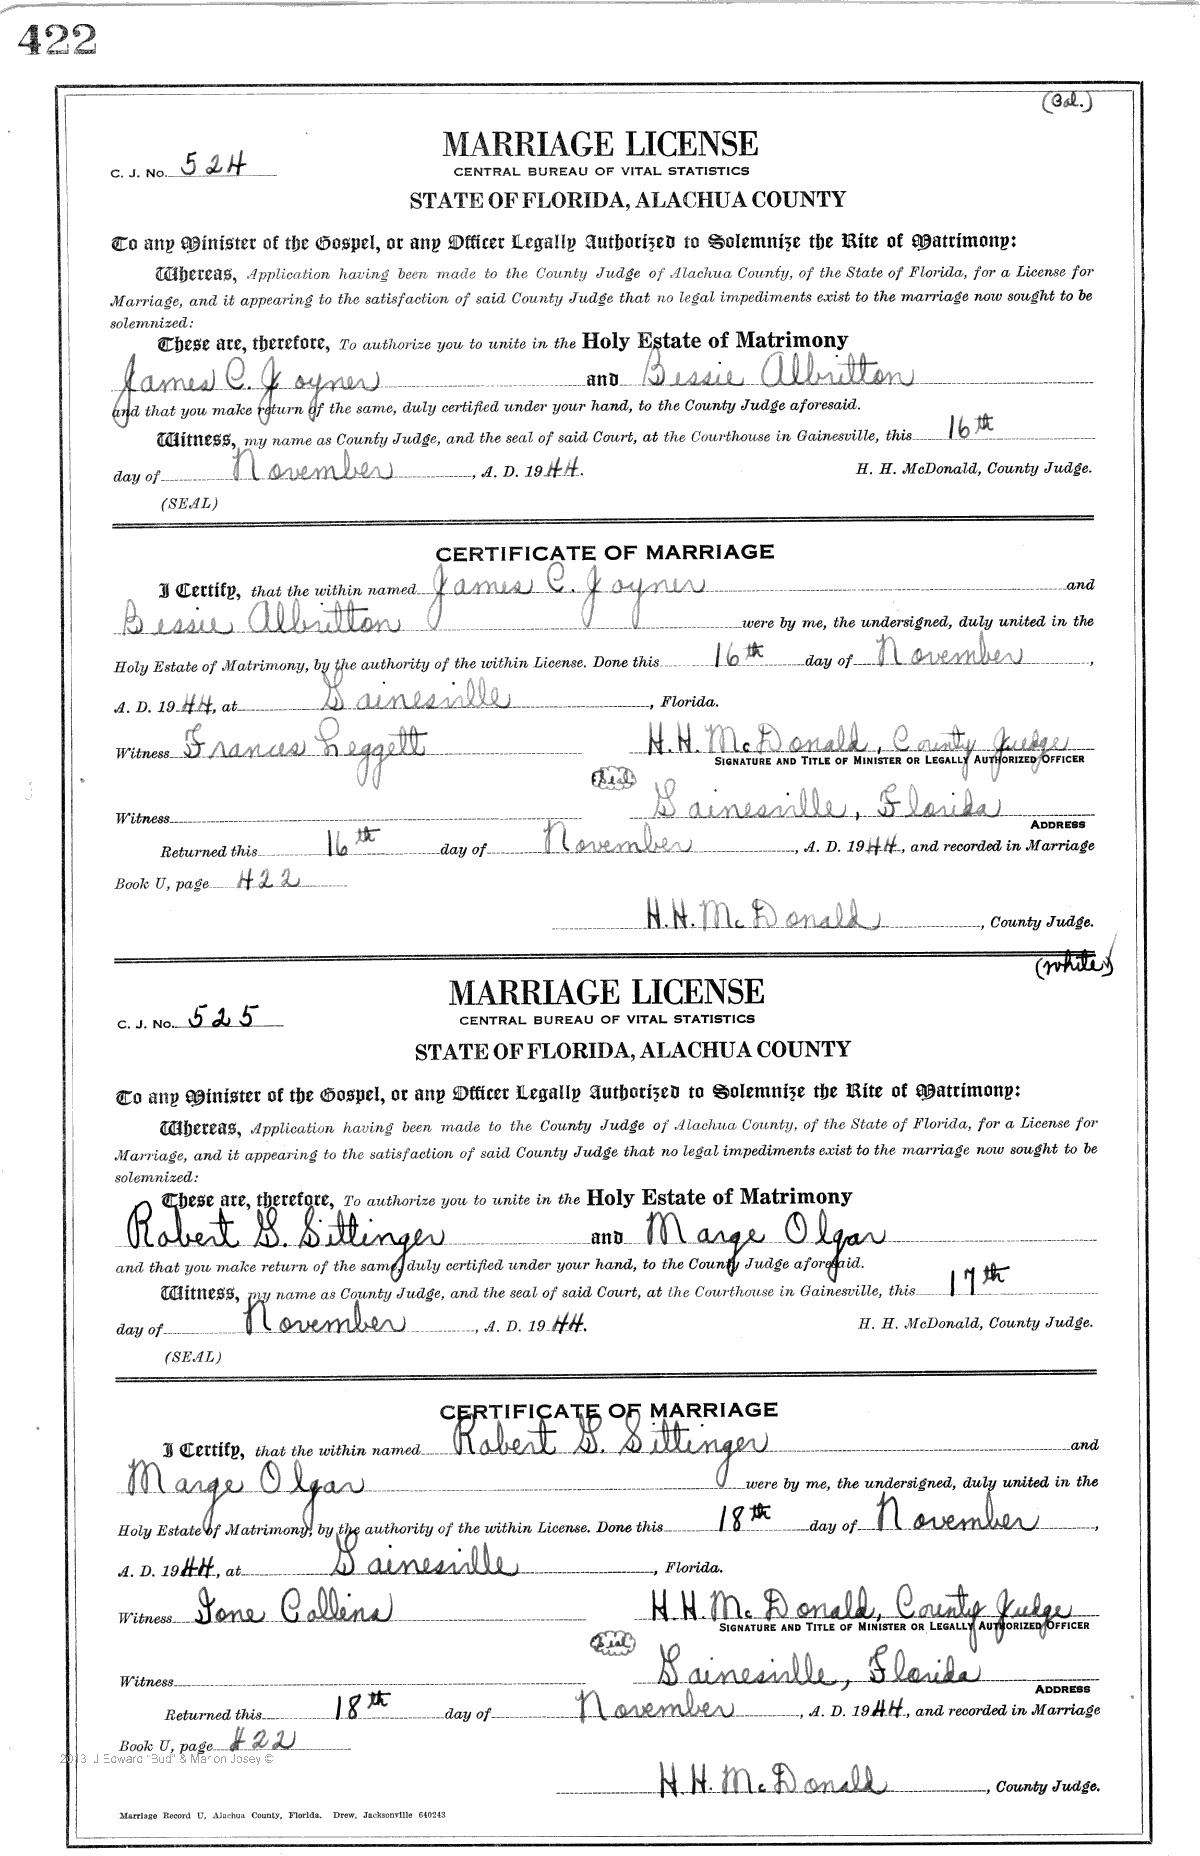 422
(Col.)
MARRIAGE LICENSE
C. J. No. 524
CENTRAL BUREAU OF VITAL STATISTICS
STATE OF FLORIDA, ALACHUA COUNTY
To any Minister of the Gospel, or any Officer Legally Authorized to Solemnize the Rite of Matrimony:
Whereas, Application having been made to the County Judge of Alachua County, of the State of Florida, for a License for
Marriage, and it appearing to the satisfaction of said County Judge that no legal impediments exist to the marriage now sought to be
solemnized:
These are, therefore, To authorize you to unite in the Holy Estate of Matrimony
James C. Joyner and Bessie Albritton
and that you make return of the same, duly certified under your hand, to the County Judge aforesaid.
Witness, my name as County Judge, and the seal of said Court, at the Courthouse in Gainesville, this 16th
day of November, A. D. 1944. H. H. McDonald, County Judge.
(SEAL)
CERTIFICATE OF MARRIAGE
I Certify, that the within named James C. Joyner and
Bessie Albritton were by me, the undersigned, duly united in the
Holy Estate of Matrimony, by the authority of the within License. Done this 16th day of November,
A. D. 1944, at Gainesville, Florida.
Witness Frances Leggett H. H. McDonald, County Judge
SIGNATURE AND TITLE OF MINISTER OR LEGALLY AUTHORIZED OFFICER
(Seal)
Gainesville, Florida
Witness ADDRESS
Returned this 16th day of November, A. D. 1944, and recorded in Marriage
Book U, page 422
H. H. McDonald, County Judge.
(white)
MARRIAGE LICENSE
C. J. No. 525
CENTRAL BUREAU OF VITAL STATISTICS
STATE OF FLORIDA, ALACHUA COUNTY
To any Minister of the Gospel, or any Officer Legally Authorized to Solemnize the Rite of Matrimony:
Whereas, Application having been made to the County Judge of Alachua County, of the State of Florida, for a License for
Marriage, and it appearing to the satisfaction of said County Judge that no legal impediments exist to the marriage now sought to be
solemnized:
These are, therefore, To authorize you to unite in the Holy Estate of Matrimony
Robert G. Sittinger and Marge Olgar
and that you make return of the same, duly certified under your hand, to the County Judge aforesaid.
Witness, my name as County Judge, and the seal of said Court, at the Courthouse in Gainesville, this 17th
day of November, A. D. 1944. H. H. McDonald, County Judge.
(SEAL)
CERTIFICATE OF MARRIAGE
I Certify, that the within named Robert G. Sittinger and
Marge Olgar were by me, the undersigned, duly united in the
Holy Estate of Matrimony, by the authority of the within License. Done this 18th day of November,
A. D. 1944, at Gainesville, Florida.
Witness Ione Collins H. H. McDonald, County Judge
SIGNATURE AND TITLE OF MINISTER OR LEGALLY AUTHORIZED OFFICER
(Seal)
Gainesville, Florida
Witness ADDRESS
Returned this 18th day of November, A. D. 1944, and recorded in Marriage
Book U, page 422
2013 J Edward "Bud" & Marion Josey ©
H. H. McDonald, County Judge.
Marriage Record U, Alachua County, Florida. Drew, Jacksonville 640243